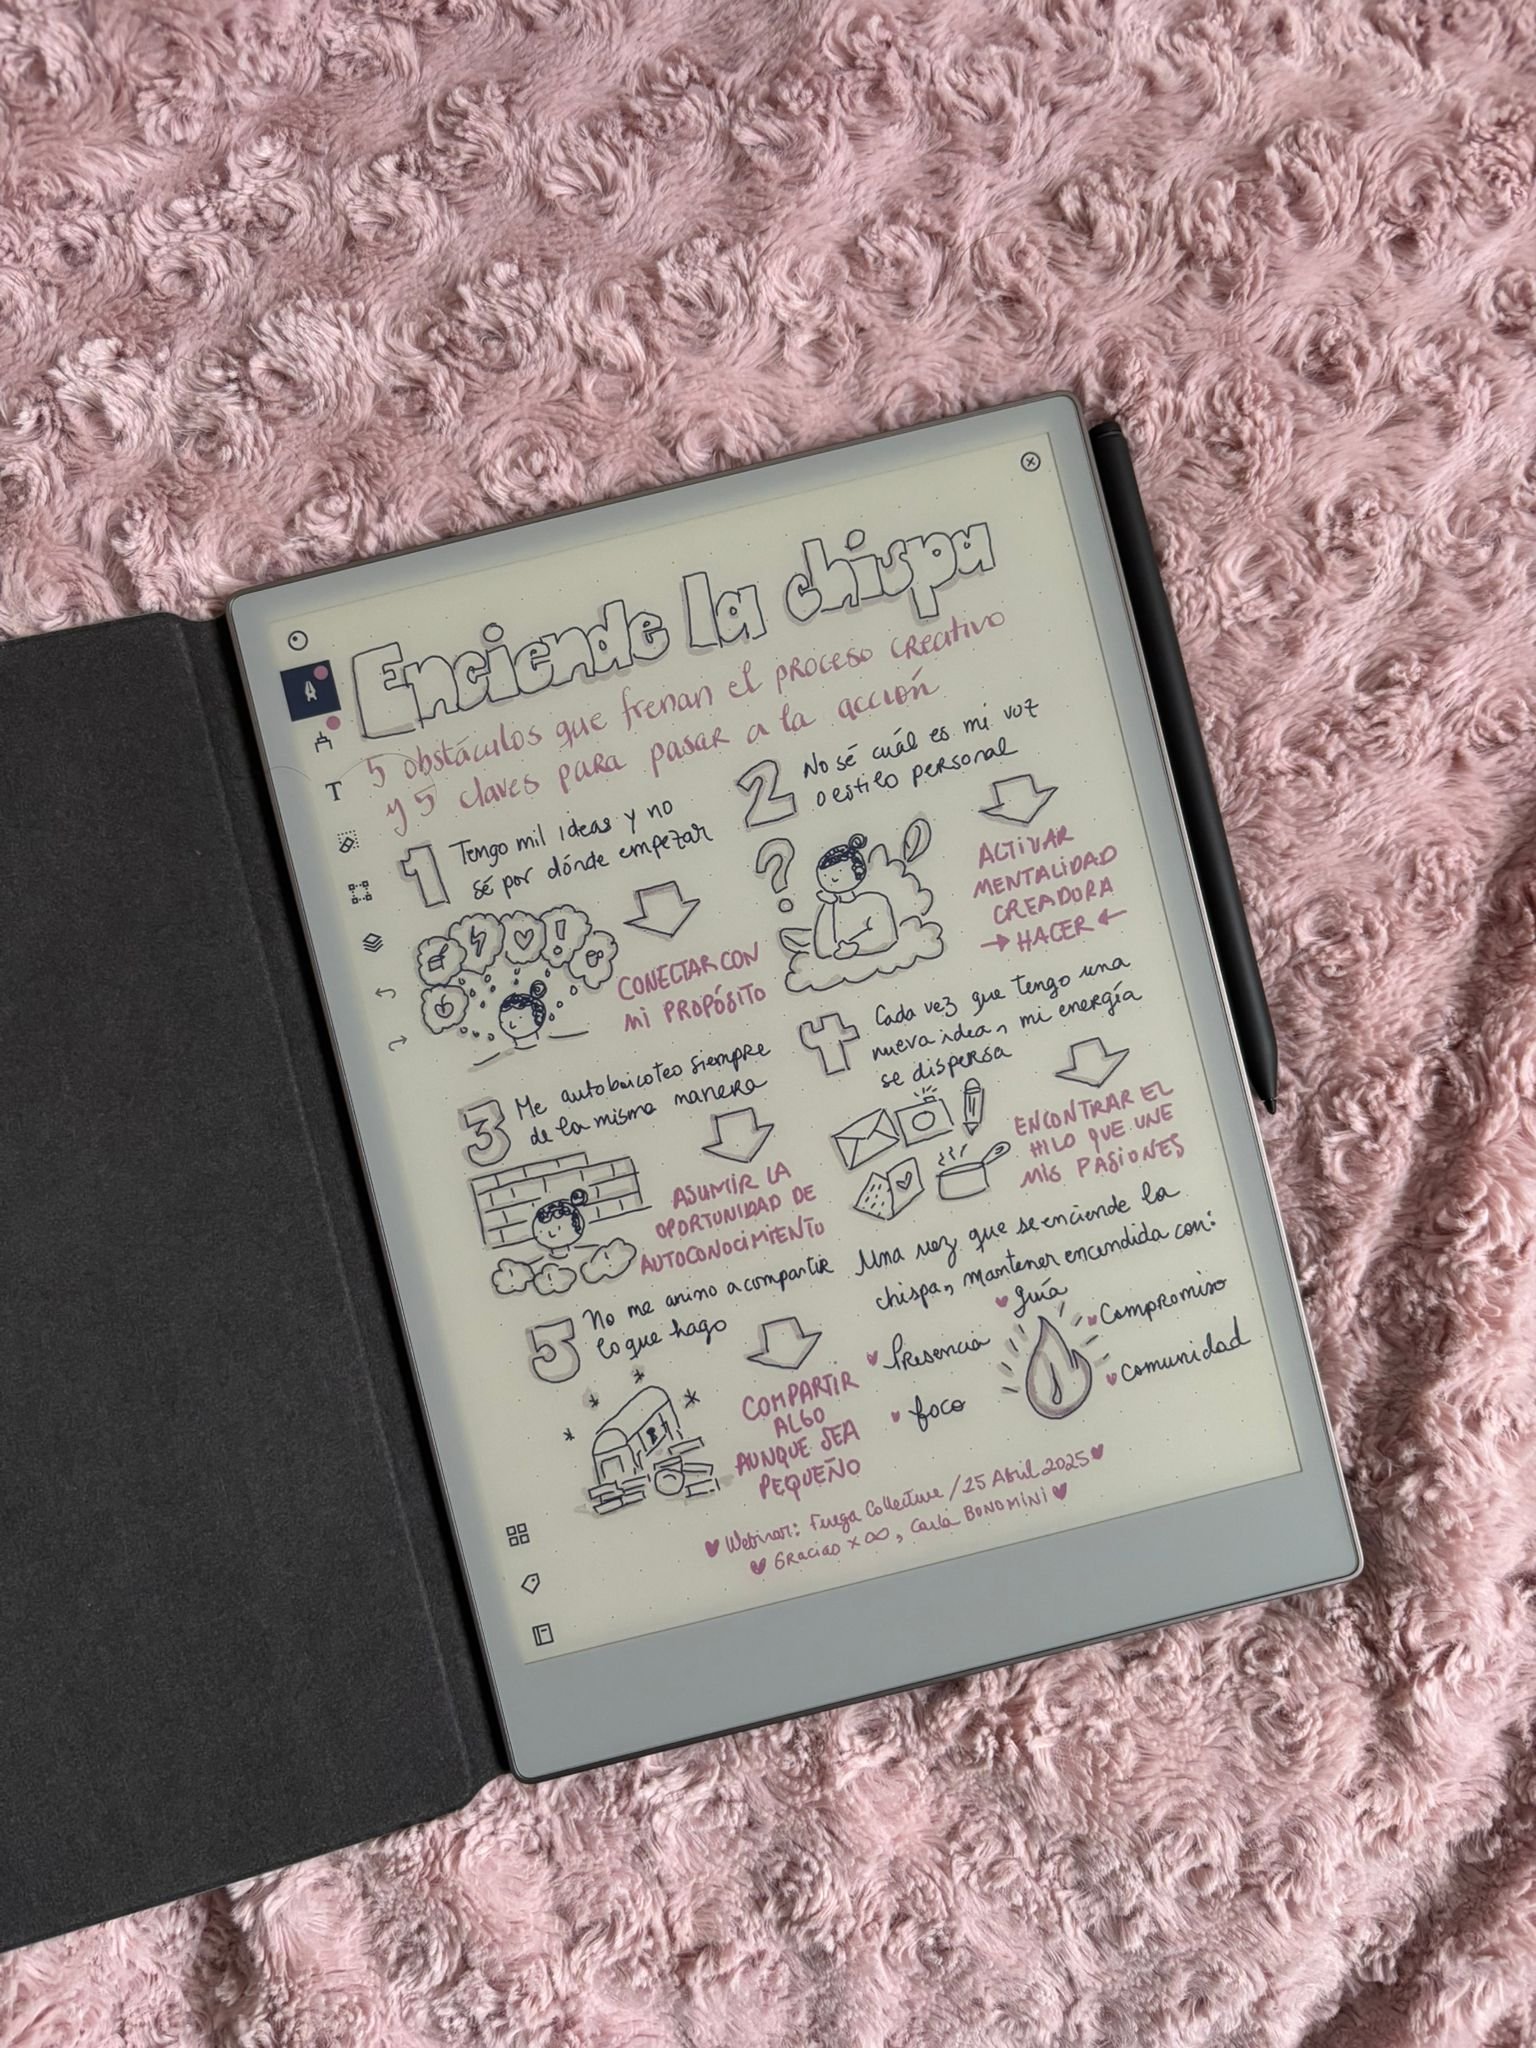 Enciende la chispa
5 obstáculos que frenan el proceso creativo
y 5 claves para pasar a la acción
1
Tengo mil ideas y no
sé por dónde empezar
CONECTAR CON
MI PROPÓSITO
2
No sé cuál es mi voz
o estilo personal
?
ACTIVAR
MENTALIDAD
CREADORA
→ HACER ←
3
Me autoboicoteo siempre
de la misma manera
ASUMIR LA
OPORTUNIDAD DE
AUTOCONOCIMIENTO
4
Cada vez que tengo una
nueva idea, mi energía
se dispersa
ENCONTRAR EL
HILO QUE UNE
MIS PASIONES
5
No me animo a compartir
lo que hago
COMPARTIR
ALGO
AUNQUE SEA
PEQUEÑO
Una vez que se enciende la
chispa, mantener encendida con:
♥ guía
♥ Compromiso
♥ Presencia
♥ Comunidad
♥ foco
♥ Webinar: Fuega Collective / 25 Abril 2025 ♥
♥ Gracias x ∞, Carla BONOMINI ♥
T